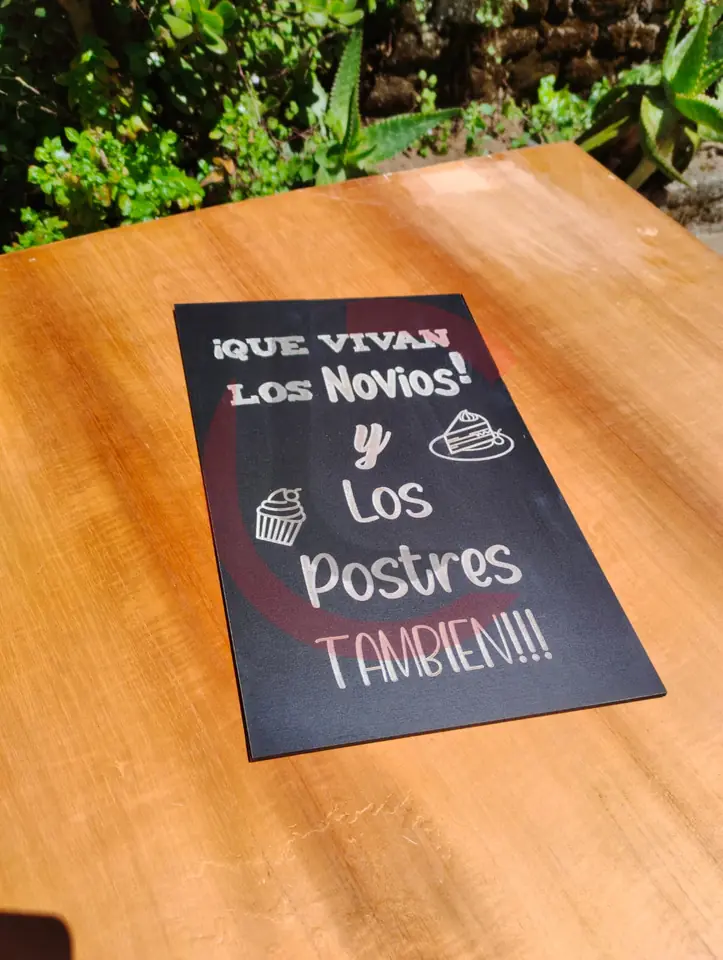 ¡QUE VIVAN
LOS Novios!
y
Los
Postres
TAMBIEN!!!